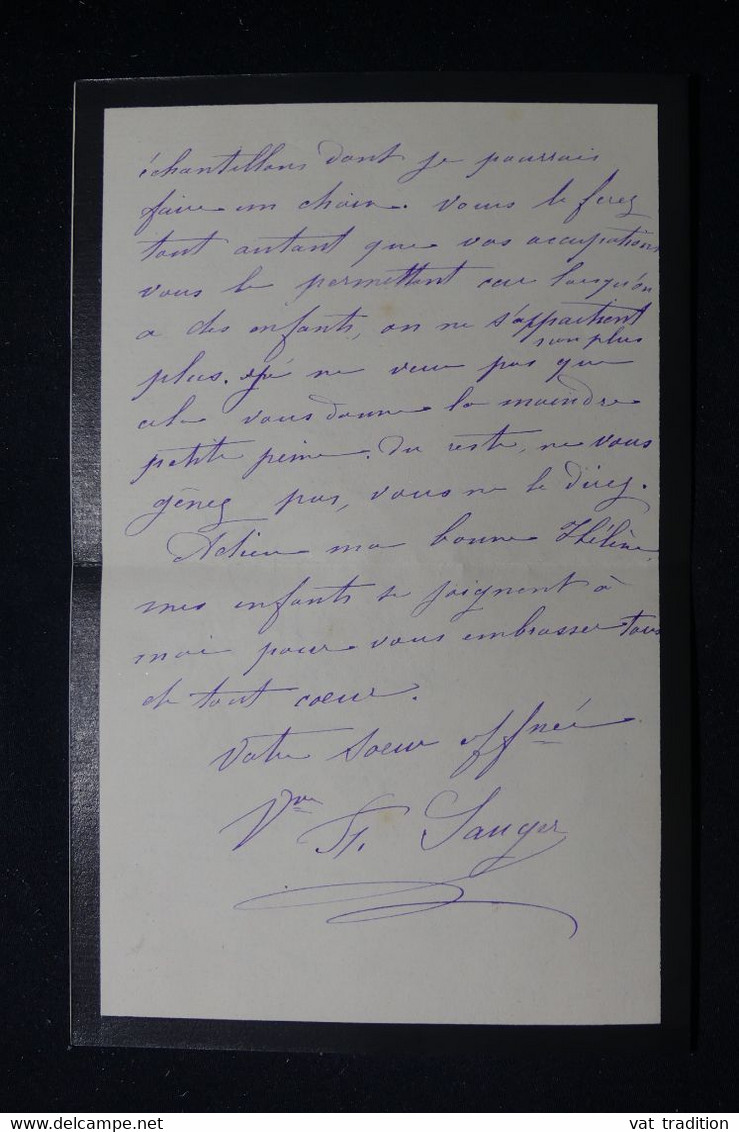 échantillons dont je pourrais
faire un choix. Vous le ferez
tout autant que vos occupations
vous le permettent car lorsqu'on
a des enfants, on ne s'appartient
non plus
plus. Je ne veux pas que
cela vous donne la moindre
petite peine. Du reste, ne vous
gênez pas, vous me le direz.
Adieu ma bonne Hélène,
mes enfants se joignent à
moi pour vous embrasser tous
de tout coeur.
Votre soeur affnée
Vve St. Sauger
www.delcampe.net
vat tradition